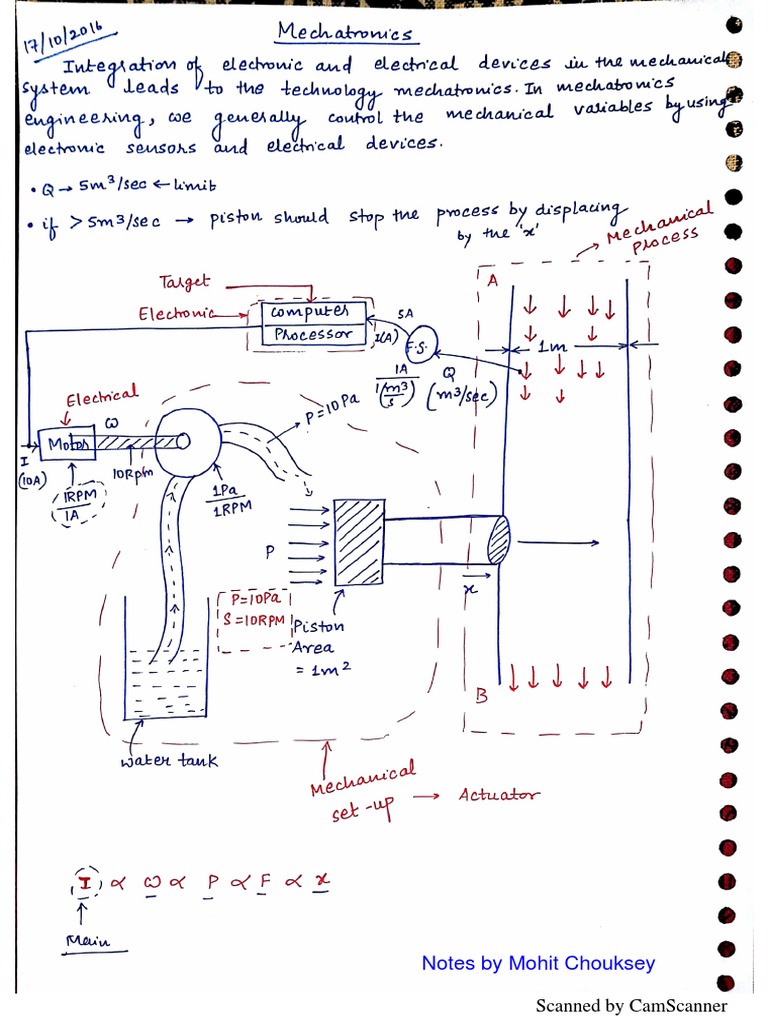 17/10/2016
Mechatronics
Integration of electronic and electrical devices in the mechanical
system leads to the technology mechatronics. In mechatronics
engineering, we generally control the mechanical variables by using
electronic sensors and electrical devices.
• Q → 5m³/sec ← limit
• if > 5m³/sec → piston should stop the process by displacing
by the 'x'
→ Mechanical
process
Target
A
Electronic →
Computer
Processor
5A
I(A)
F.S.
1m
1A
Q
(m³/sec)
Electrical
ω
P=10Pa
Motor
I
(10A)
10Rpm
1RPM
1A
1Pa
1RPM
P
x
P=10Pa
S=10RPM
Piston
Area
= 1m²
B
water tank
Mechanical
set-up → Actuator
I ∝ ω ∝ P ∝ F ∝ x
Main
Notes by Mohit Chouksey
Scanned by CamScanner